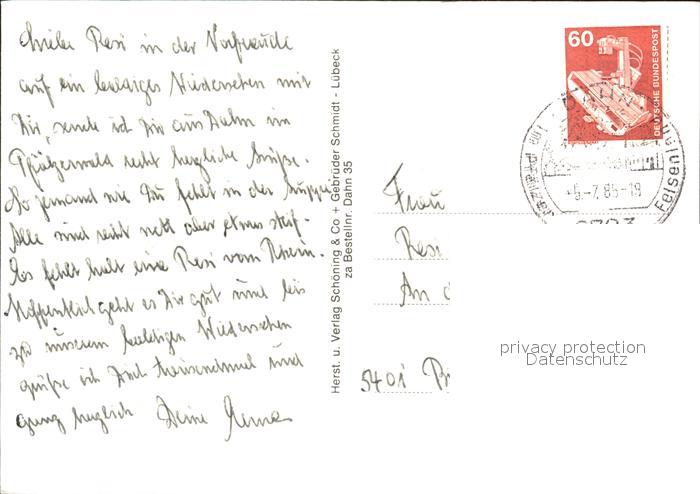 Liebe Resi in der Vorfreude
auf ein baldiges Wiedersehen mit
Dir, sende ich Dir aus Dahn im
Pfälzerwald recht herzliche Grüße.
So jemand wie Du fehlt in der Gruppe
Alle sind recht nett aber etwas steif.
Es fehlt halt eine Resi vom Rhein.
Hoffentlich geht es Dir gut und bis
zu unserem baldigen Wiedersehen
grüße ich Dich tausendmal und
ganz herzlich Deine
Herst. u. Verlag Schöning & Co + Gebrüder Schmidt - Lübeck
za Bestellnr. Dahn 35
60
DEUTSCHE BUNDESPOST
Felsenland
Frau
Resi
An d
5401
privacy protection
Datenschutz